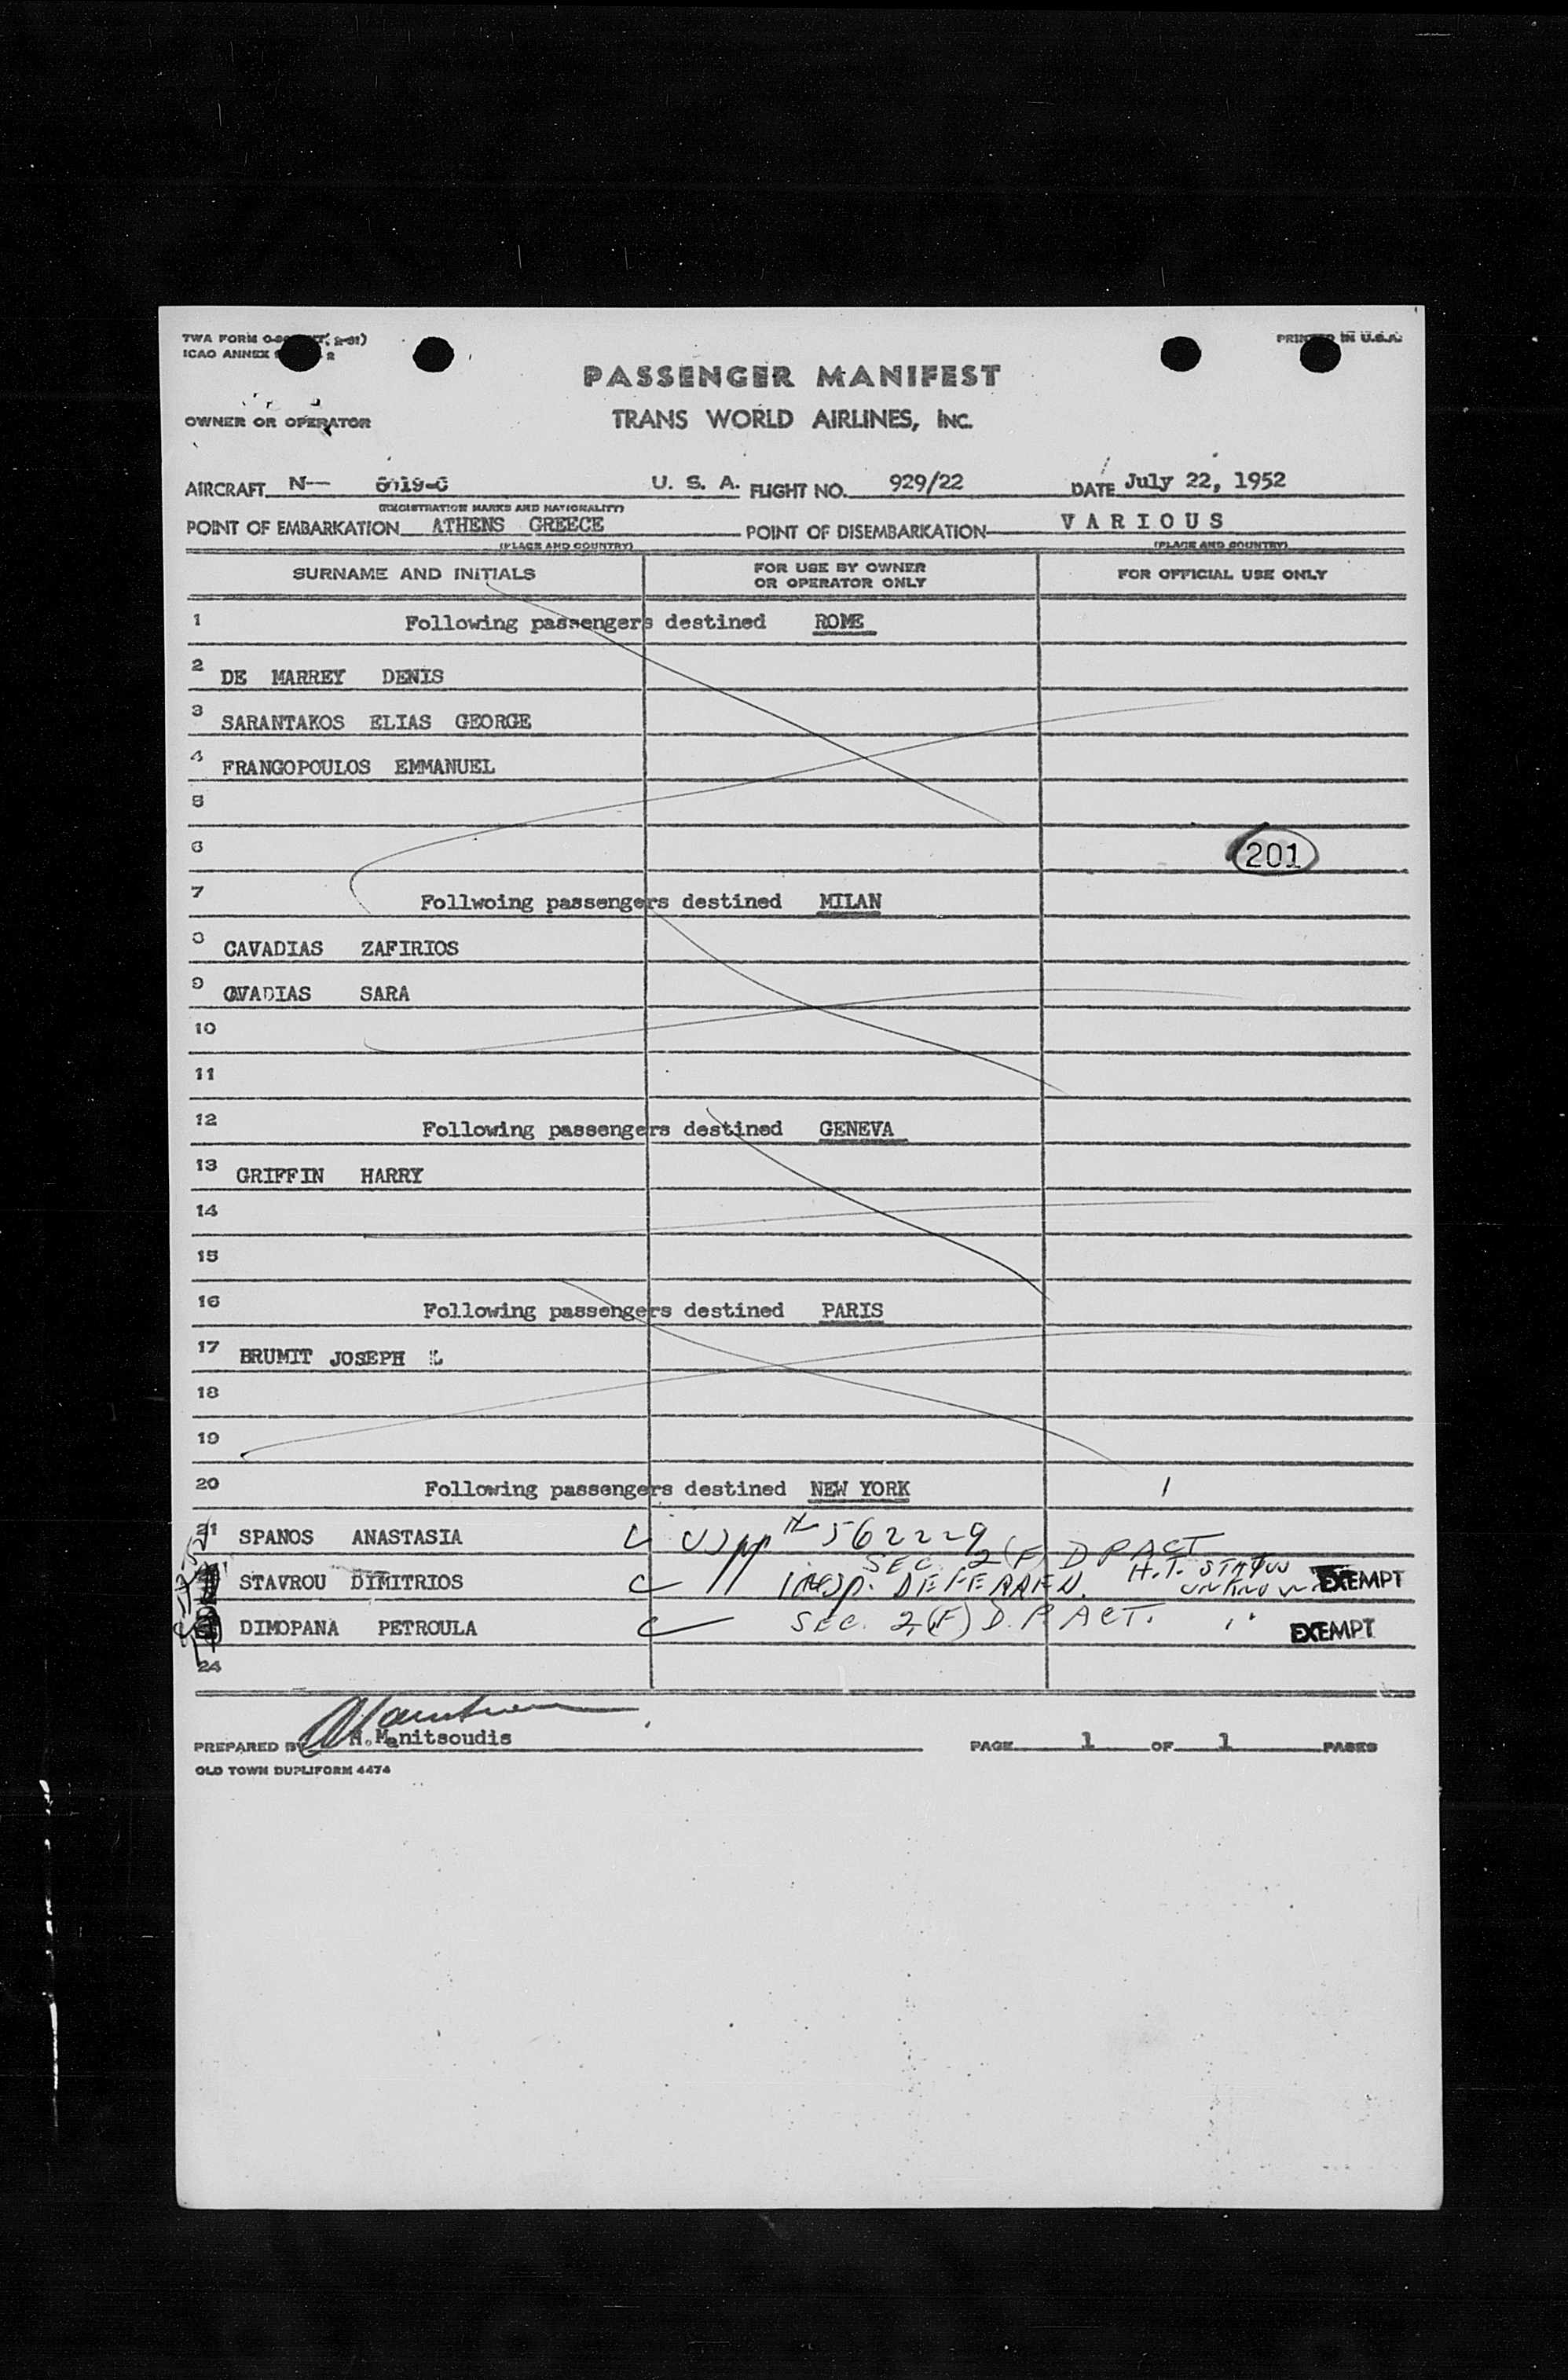 TWA FORM
ICAO ANNEX 2
PRINTED IN U.S.A.
PASSENGER MANIFEST
OWNER OR OPERATOR
TRANS WORLD AIRLINES, INC.
AIRCRAFT N— U. S. A. FLIGHT NO. 929/22 DATE July 22, 1952
(REGISTRATION MARKS AND NATIONALITY)
POINT OF EMBARKATION ATHENS GREECE POINT OF DISEMBARKATION VARIOUS
(PLACE AND COUNTRY) (PLACE AND COUNTRY)
SURNAME AND INITIALS FOR USE BY OWNER OR OPERATOR ONLY FOR OFFICIAL USE ONLY
1 Following passengers destined ROME
2 DE MARREY DENIS
3 SARANTAKOS ELIAS GEORGE
4 FRANGOPOULOS EMMANUEL
5
6 201
7 Follwoing passengers destined MILAN
8 CAVADIAS ZAFIRIOS
9 CAVADIAS SARA
10
11
12 Following passengers destined GENEVA
13 GRIFFIN HARRY
14
15
16 Following passengers destined PARIS
17 BRUMIT JOSEPH L
18
19
20 Following passengers destined NEW YORK
21 SPANOS ANASTASIA USPP # 562229
SEC. 2(F) D P ACT
STAVROU DIMITRIOS INSP. DEFERRED. H.T. STATUS UNKNOWN EXEMPT
DIMOPANA PETROULA SEC. 2(F) D.P. ACT. " EXEMPT
24
PREPARED BY Manitsoudis PAGE 1 OF 1 PAGES
OLD TOWN DUPLIFORM 4474